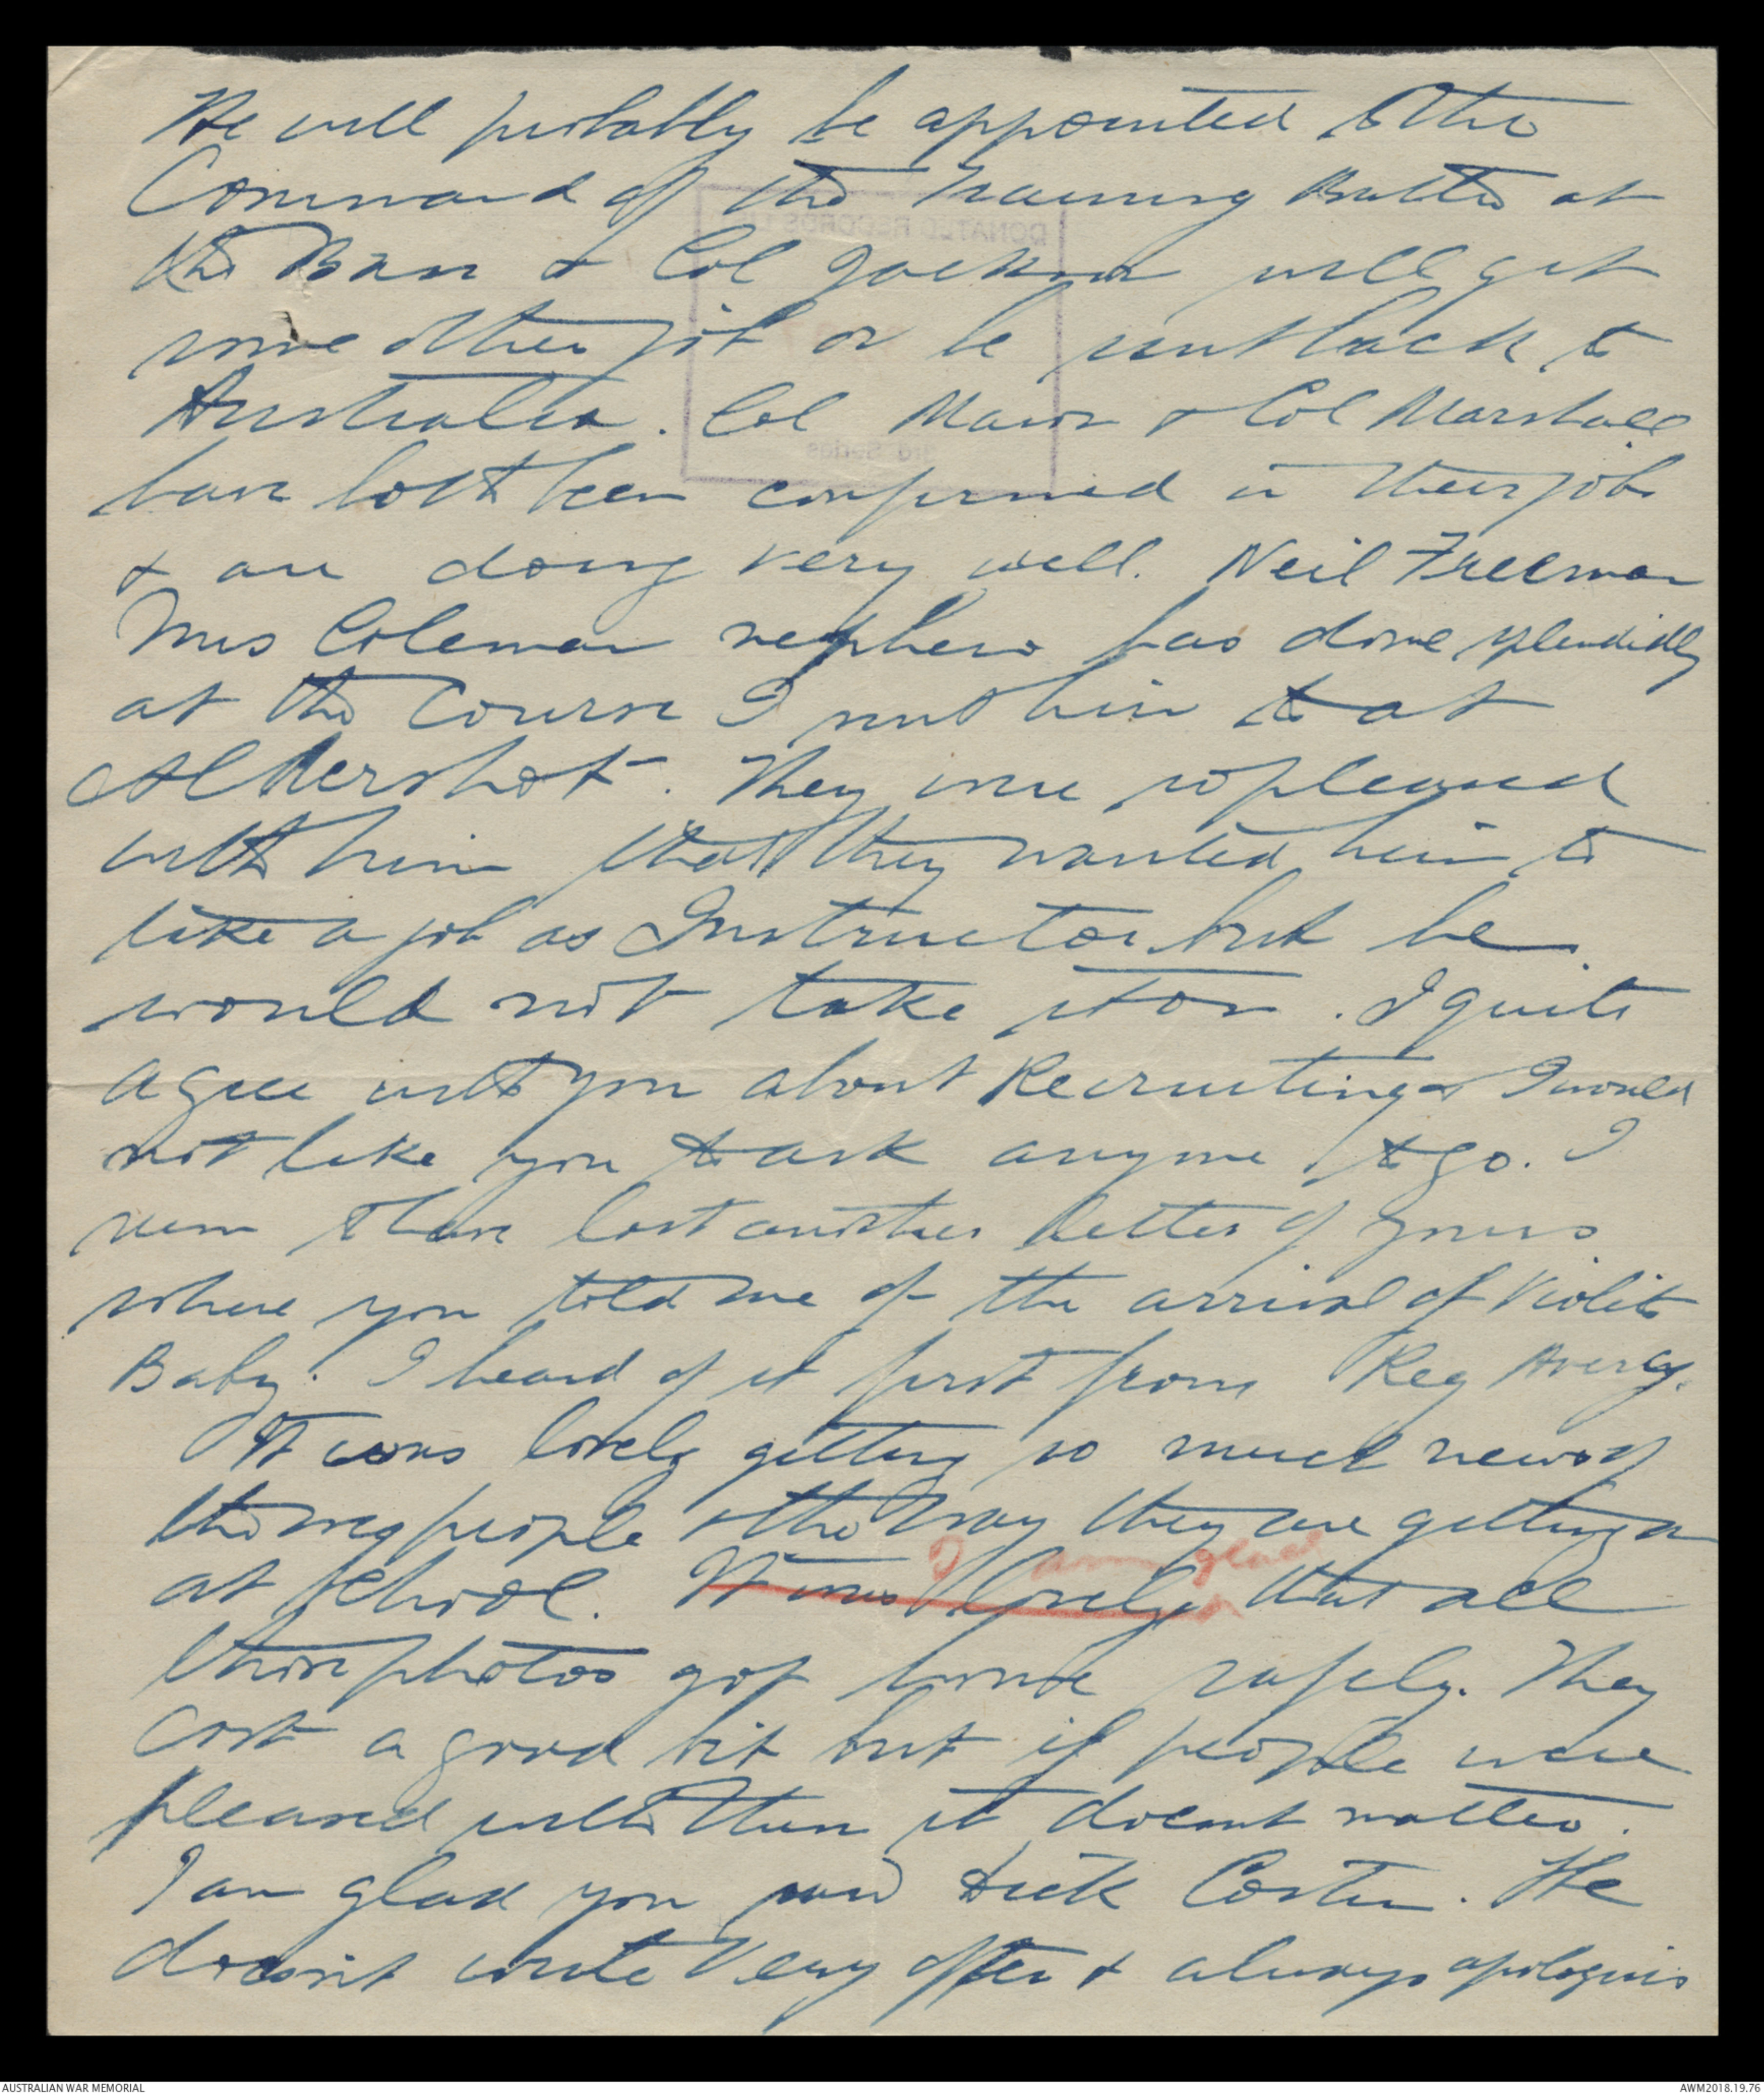 He will probably be appointed to the
Command of the Training Battn at
the Base & Col Jackson will get
some other job or be sent back to
Australia. Col Mawor & Col Marshall
have both been confirmed in their job
& are doing very well. Neil Freeman
Mrs Coleman nephew has done splendidly
at the Course I sent him to at
Aldershot. They were so pleased
with him that they wanted him to
take a job as Instructor but he
would not take it on. I quite
agree with you about Recruiting & I would
not like you to ask anyone to go. I
seem to have lost another letter of yours
where you told me of the arrival of Violets
Baby. I heard of it first from Reg Avery.
It was lovely getting so much news of
the wee people & the way they are getting on
at school. It was lovely I am glad that all
those photos got home safely. They
cost a good bit but if people were
pleased with them it doesnt matter.
I am glad you saw Dick Coster. He
doesn't write very often & always apologises
DONATED RECORDS LIST
3rd Series
AUSTRALIAN WAR MEMORIAL
AWM2018.19.76